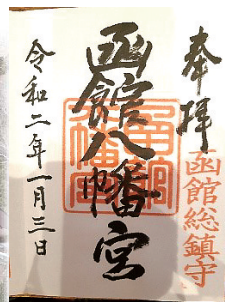 奉拝
函館総鎮守
函館八幡宮
令和二年一月三日